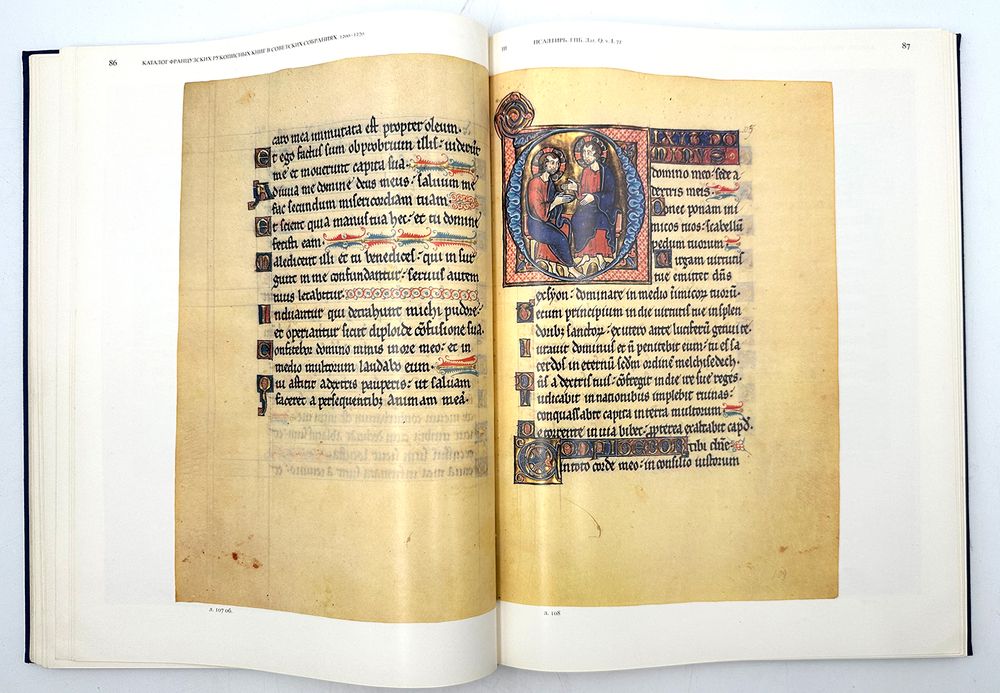 86 КАТАЛОГ ФРАНЦУЗСКИХ РУКОПИСНЫХ КНИГ В СОВЕТСКИХ СОБРАНИЯХ. 1200–1270
caro mea immutata est propter oleum.
Et ego factus sum obprobrium illis: viderunt
me et moverunt capita sua.
Adiuva me domine deus meus: salvum me
fac secundum misericordiam tuam.
Et scient quia manus tua hec: et tu domine
fecisti eam.
Maledicent illi et tu benedices: qui insur
gunt in me confundantur: servus autem
tuus letabitur.
Induantur qui detrahunt michi pudore:
et operiantur sicut diploide cōfusione sua.
Confitebor domino nimis in ore meo: et in
medio multorum laudabo eum.
Qui astitit a dextris pauperis: ut salvam
faceret a persequentibꝫ animam meā.
л. 107 об.
III ПСАЛТИРЬ. ГПБ. Лат. Q. v. I, 71 87
DIXIT DO
MINUS
domino meo: sede a
dextris meis.
Donec ponam ini
micos tuos: scabellū
pedum tuorum.
Virgam virtutis
tue emittet dn̄s
ex syon: dominare in medio īnimicoꝝ tuorū.
Tecum principium in die virtutis tue in splen
doribꝫ sanctoꝝ: ex utero ante luciferū genui te.
Iuravit dominus et n̄ penitebit eum: tu es sa
cerdos in eternū scdm ordinē melchisedech.
Dn̄s a dextris tuis: cōfregit in die ire sue reges.
Iudicabit in nationibus implebit ruinas:
conquassabit capita in terra multorum.
De torrente in via bibet: ꝓpterea exaltabit capđ.
CONFITEBOR tibi dn̄e
in toto corde meo: in consilio iustorum
л. 108